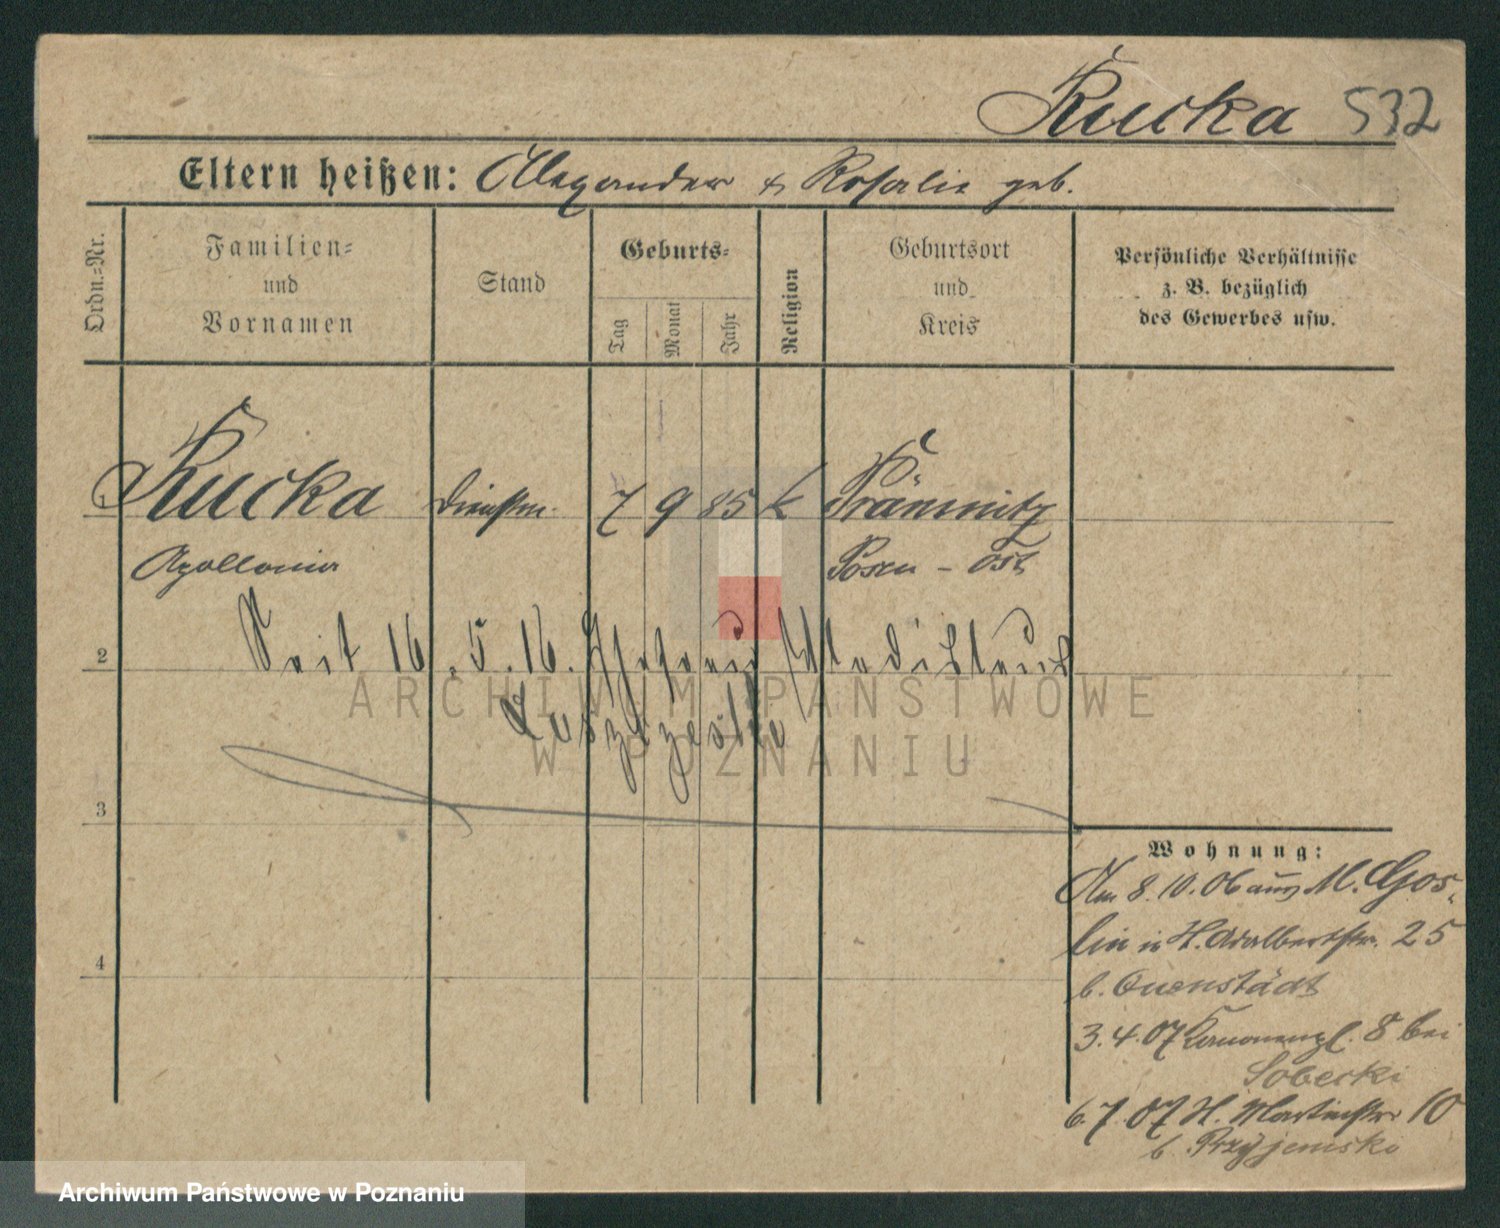 Kucka 532
Eltern heißen: Alexander & Rosalie geb.
Ordn.=Nr.
Familien=
und
Vornamen
Stand
Geburts=
Tag
Monat
Jahr
Religion
Geburtsort
und
Kreis
Persönliche Verhältnisse
z. B. bezüglich
des Gewerbes usw.
1 Kucka Dienstm. 7 9 85 k Prämnitz
Apollonia Posen - Ost
2 Seit 16.5.16. Ehefrau Wladislaus
ARCHIWUM PAŃSTWOWE
W POZNANIU
3
Wohnung:
Am 8.10.06 aus M. Gos-
lin in H. Adalbertstr. 25
4
b. Quenstädt
3.4.07 Kanonenpl. 8 bei
Sobecki
6.7.07 H. Martinstr 10
b Przyjemski
Archiwum Państwowe w Poznaniu